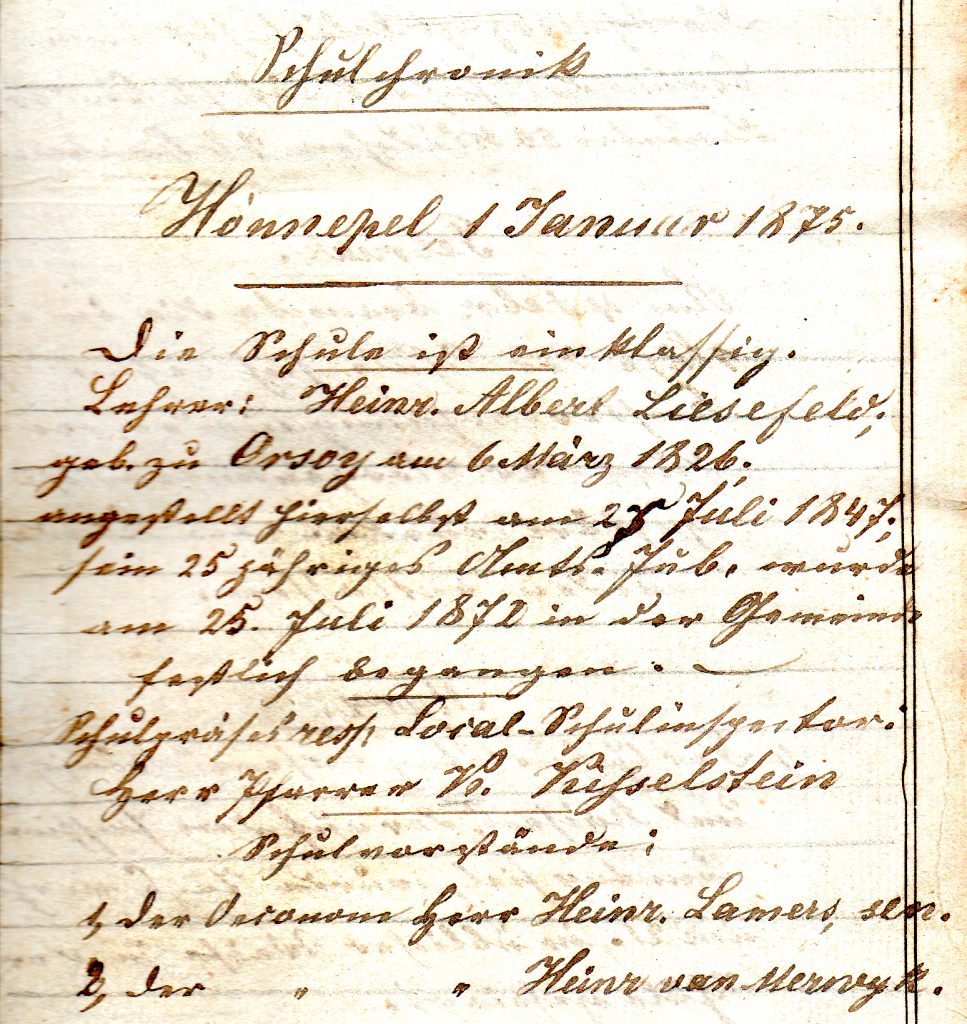 Schulchronik
Hönnepel, 1 Januar 1875.
Die Schule ist einklassig.
Lehrer: Heinr. Albert Liesefeld,
geb. zu Orsoy am 6 März 1826,
angestellt hierselbst am 25 Juli 1847;
sein 25 jähriges Amts-Jub. wurde
am 25. Juli 1872 in der Gemeinde
festlich begangen.
Schulpräses resp. Local-Schulinspector:
Herr Pfarrer
Schulvorstände:
1, der Oeconom Herr Heinr. Lamers, sen.
2, der " " Heinr van Merwyk.